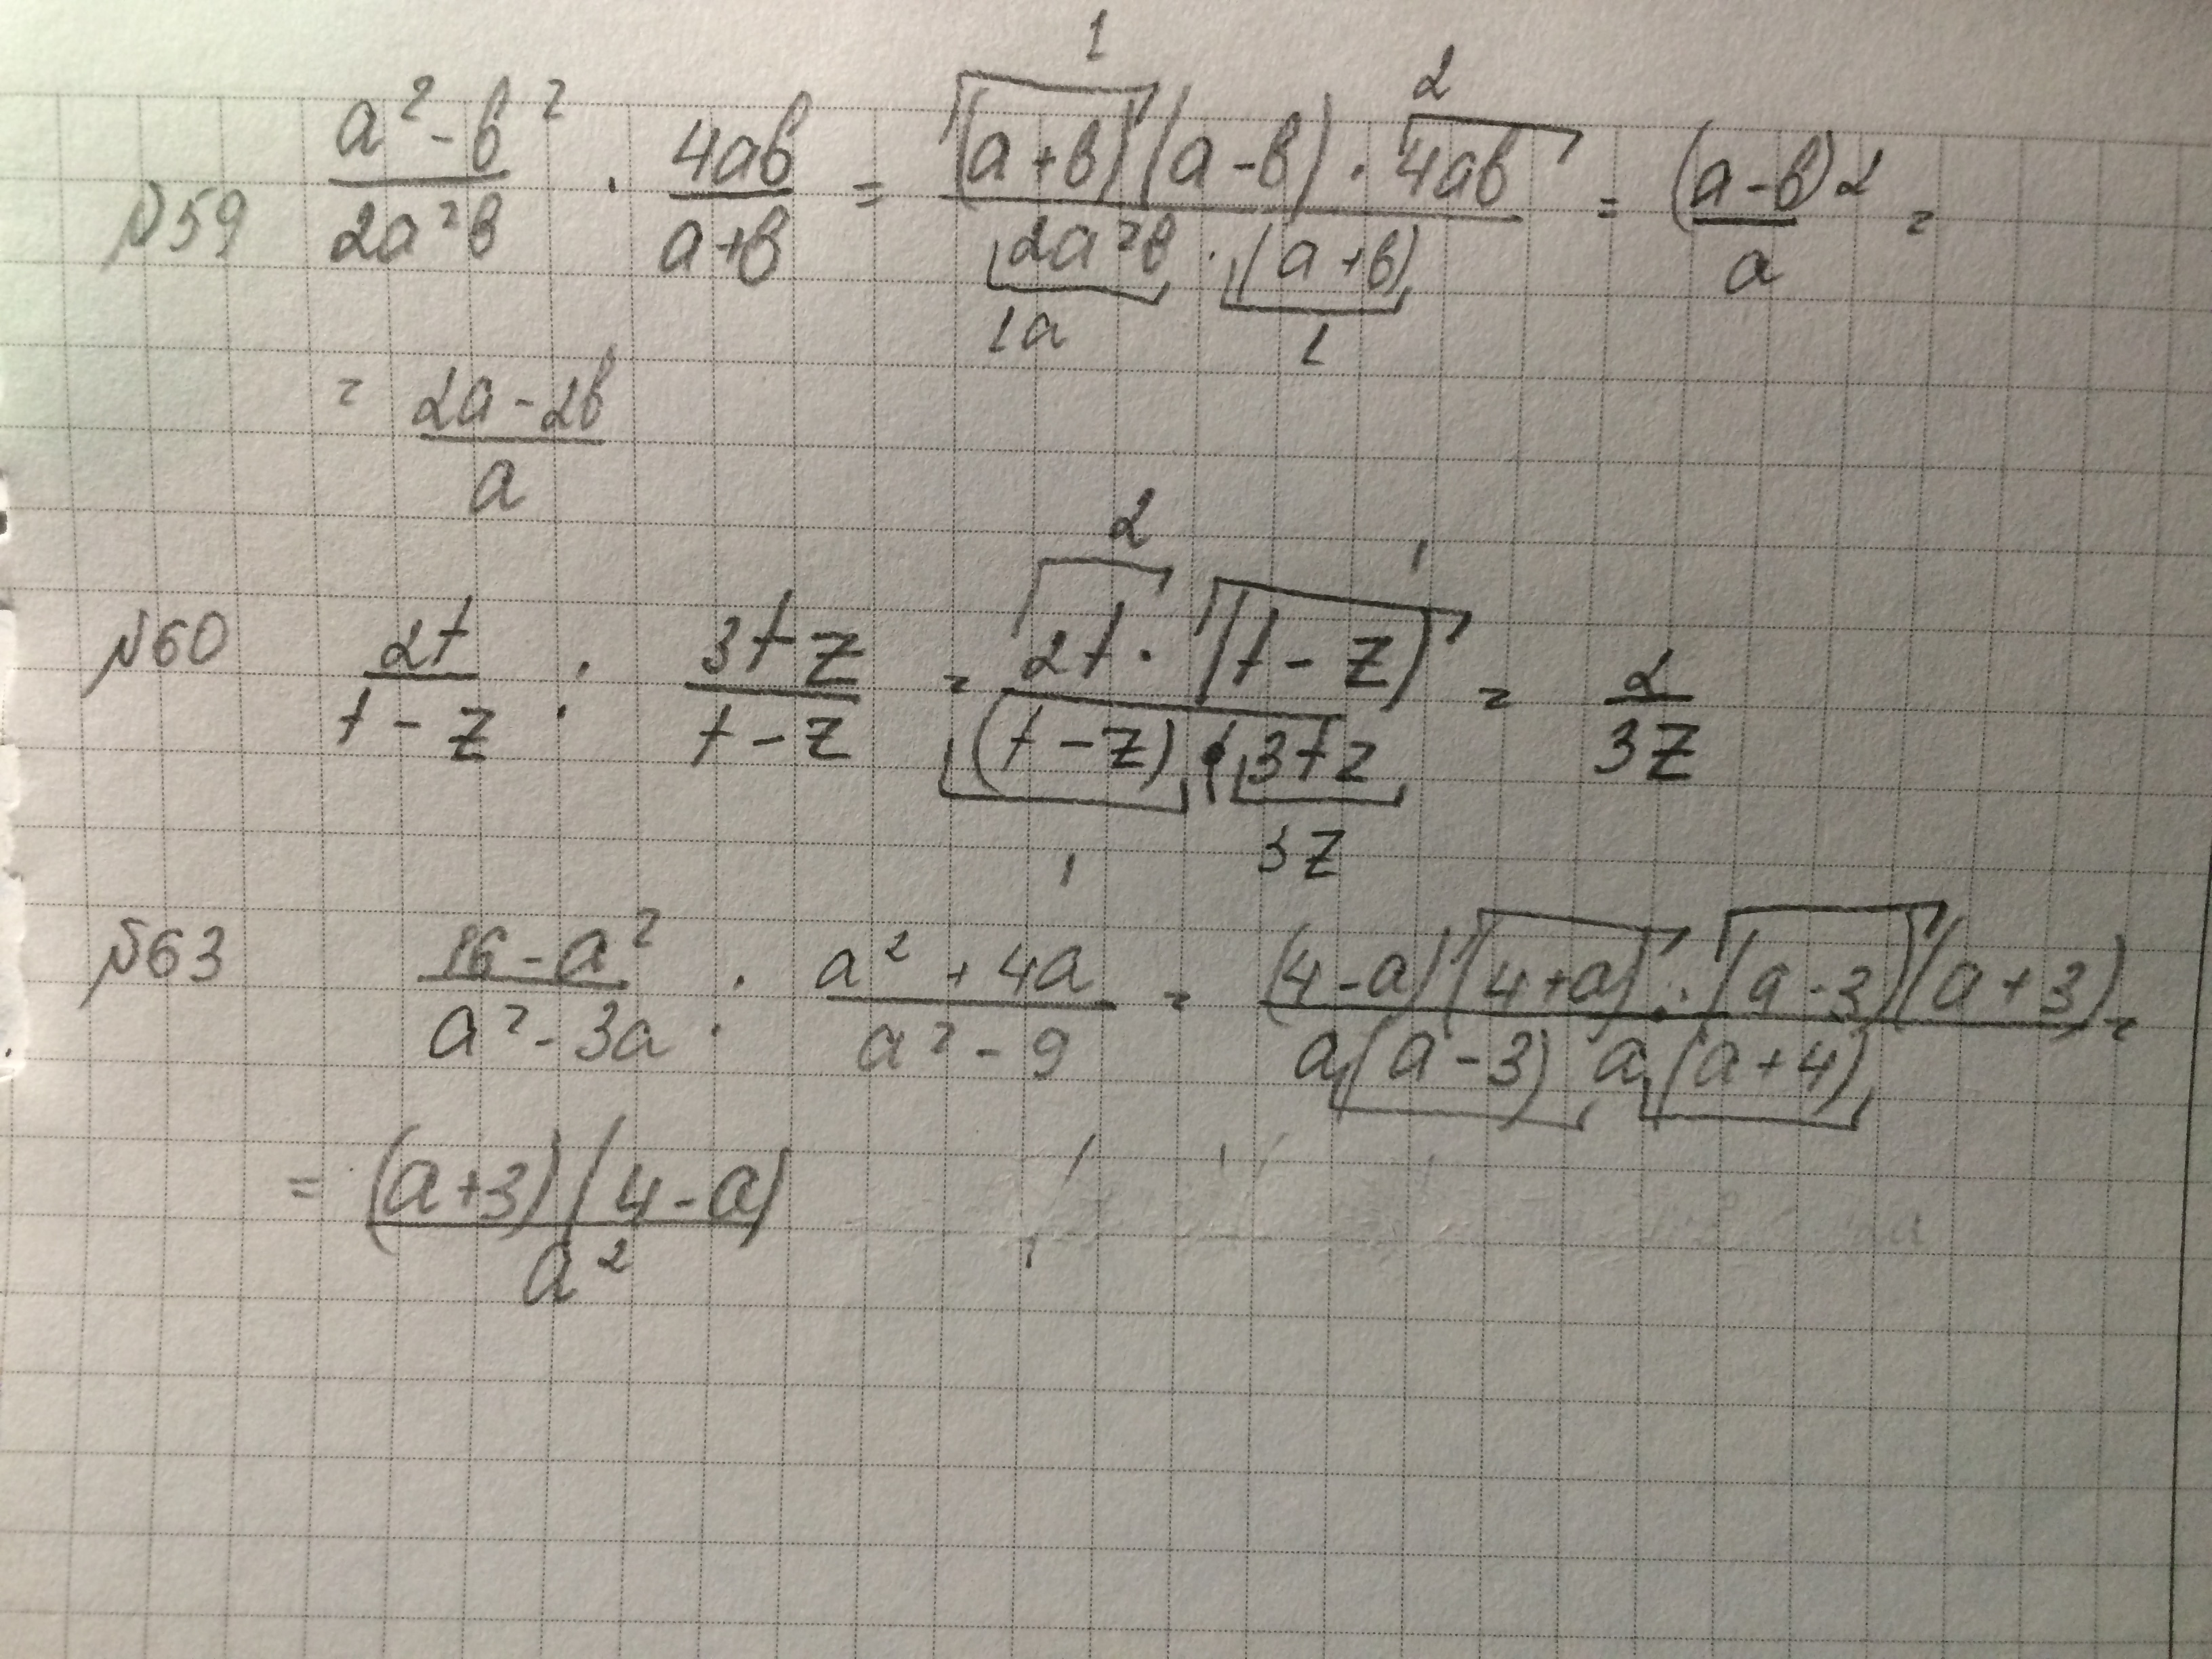 1 2
№59 (a² - b²)/(2a²b) · (4ab)/(a+b) = ((a+b)(a-b) · 4ab)/(2a²b · (a+b)) = ((a-b)2)/a =
1a 1
= (2a - 2b)/a
2 1
№60 (2t)/(t-z) : (3tz)/(t-z) = (2t · (t-z))/((t-z) · 3tz) = 2/(3z)
1 3z
№63 (16-a²)/(a²-3a) : (a²+4a)/(a²-9) = ((4-a)(4+a) · (a-3)(a+3))/(a(a-3) a(a+4)) =
= ((a+3)(4-a))/a²